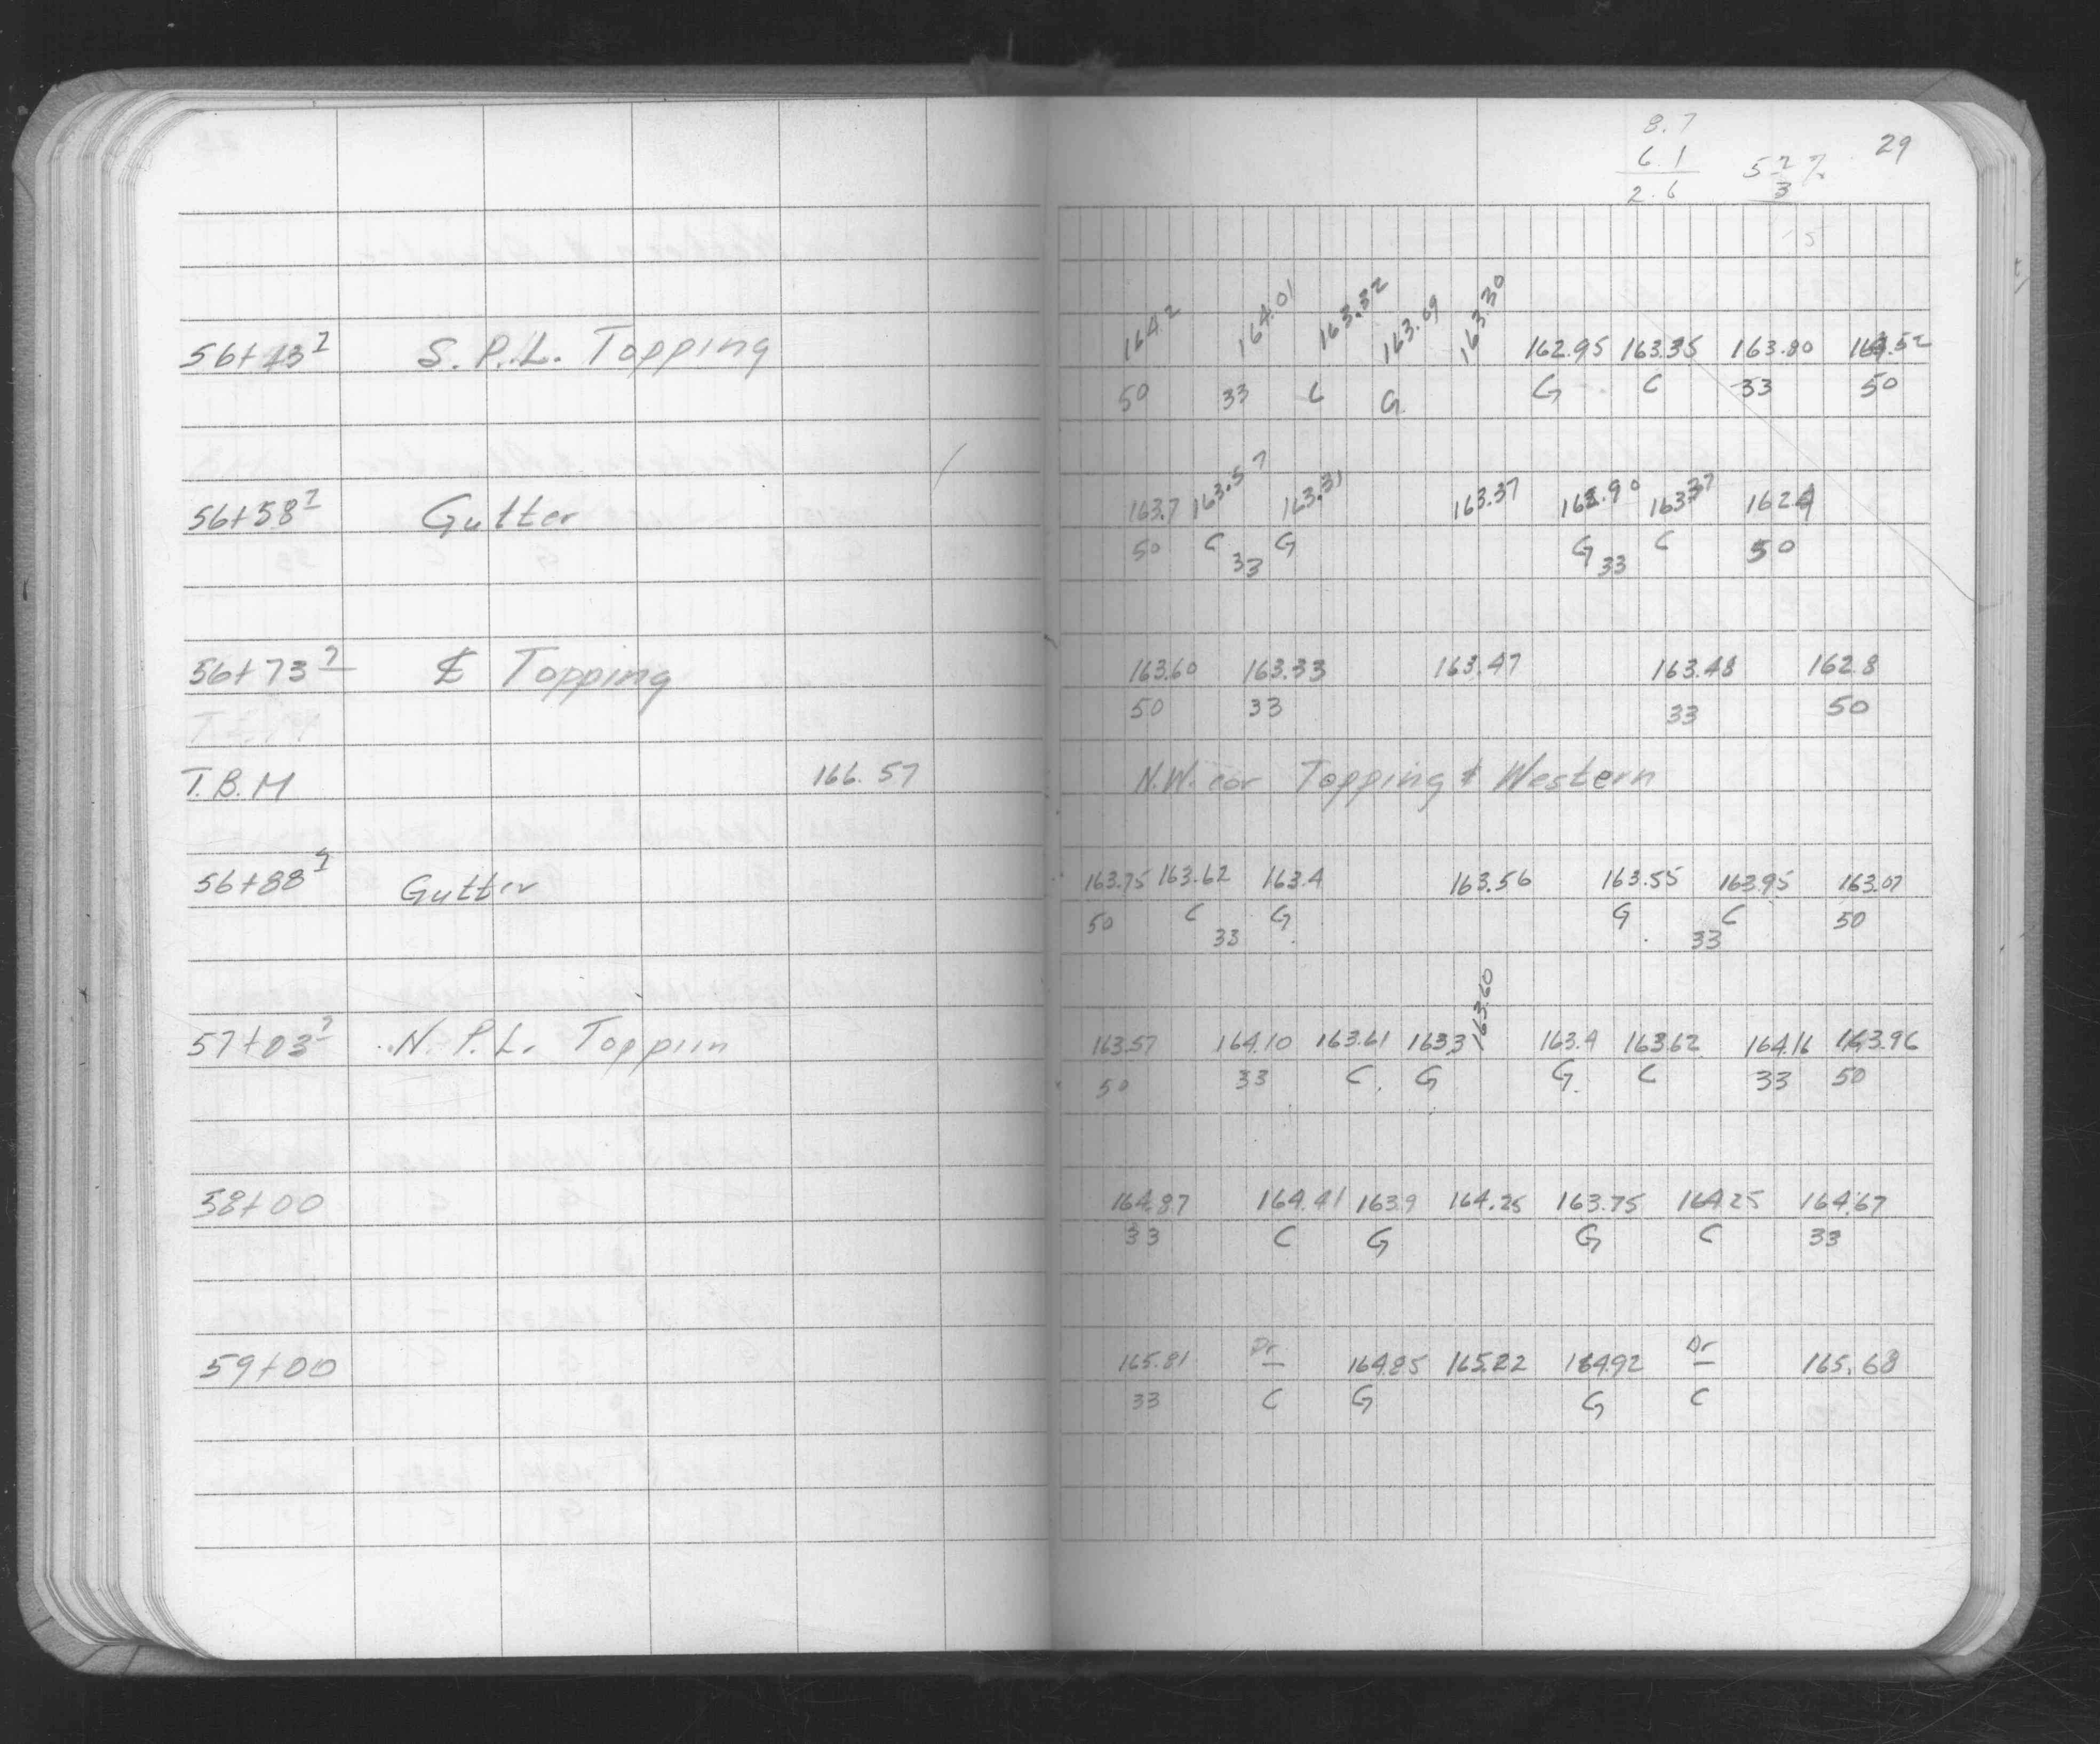 8.7
6.1
2.6
52/3 %
29
56+43² S.P.L. Topping 164.2 164.01 163.32 163.69 163.30 162.95 163.35 163.80 164.52
50 33 C G G C 33 50
56+58² Gutter 163.7 163.57 163.31 163.37 162.90 163.37 162.9
50 C 33 G G 33 C 50
56+73² ℄ Topping 163.60 163.33 163.47 163.48 162.8
50 33 33 50
T.B.M 166.57 N.W. cor Topping & Western
56+88² Gutter 163.75 163.62 163.4 163.56 163.55 163.95 163.07
50 C 33 G G 33 C 50
57+03² N.P.L. Toppin 163.57 164.10 163.61 163.3 163.60 163.4 163.62 164.16 163.96
50 33 C G G C 33 50
58+00 164.87 164.41 163.9 164.25 163.75 164.25 164.67
33 C G G C 33
59+00 165.81 Dr 164.85 165.22 164.92 Dr 165.68
33 C G G C